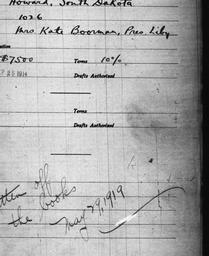 Howard, South Dakota
1026
Mrs. Kate Boorman, Pres. Liby
$7500 Terms 10%
25 1914
Drafts Authorized
Terms
Drafts Authorized
off
the books
May 29, 1919